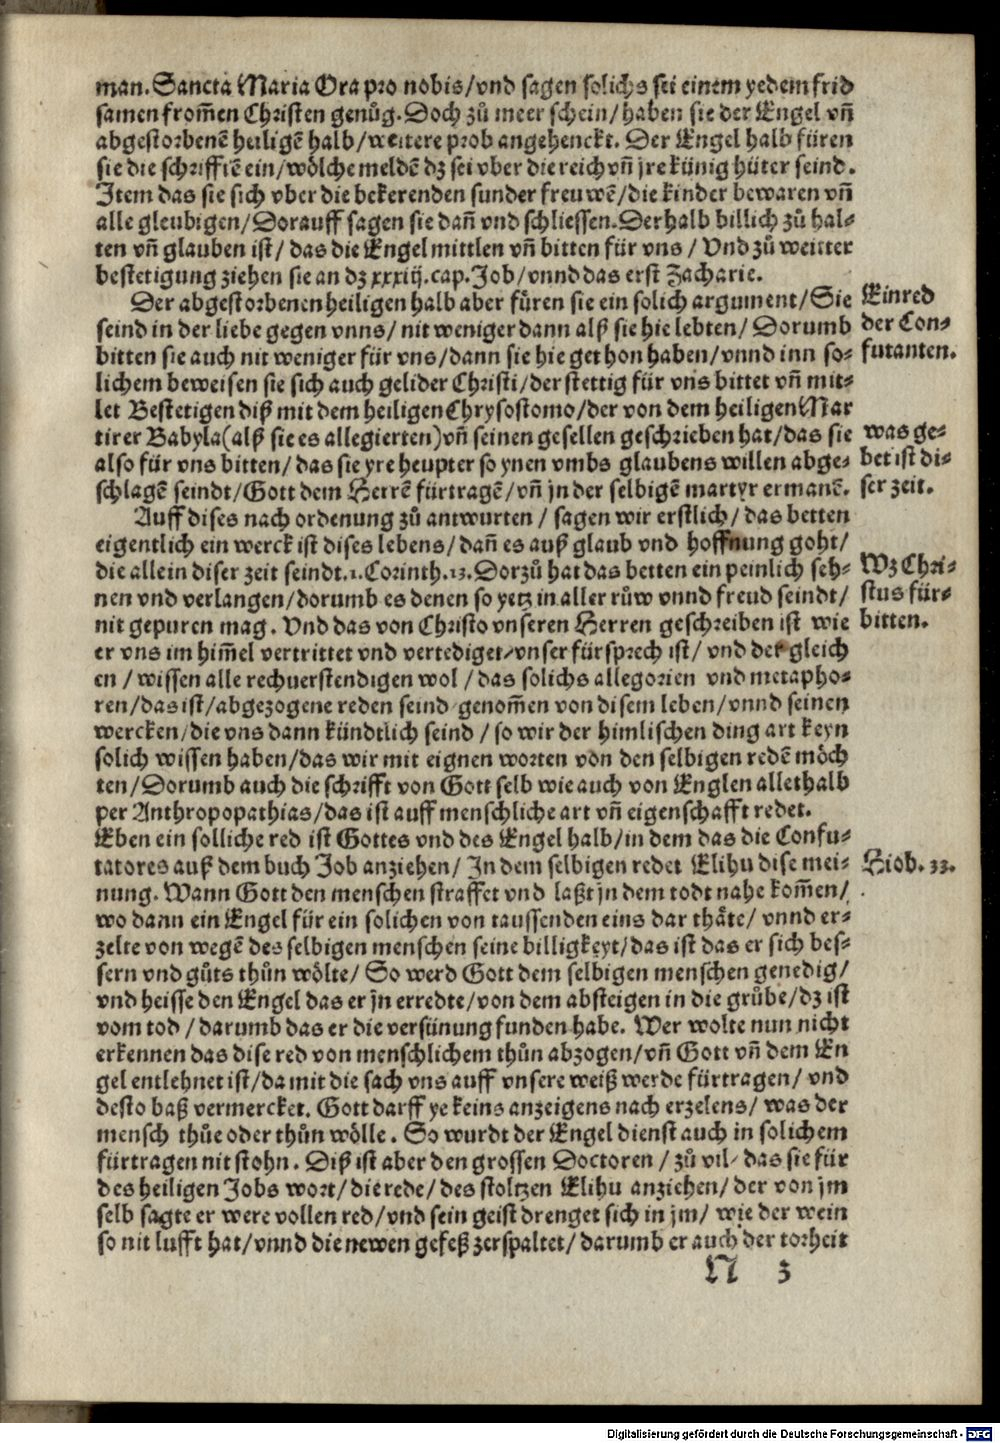 man. Sancta Maria Ora pro nobis/ vnd sagen solichs sei einem yedem frid
samen from̃en Christen genůg. Doch zů meer schein/ haben sie der Engel vñ
abgestorbenẽ heiligẽ halb/ weitere prob angehenckt. Der Engel halb fůren
sie die schrifftẽ ein/ wõlche meldẽ dz sei vber die reich vñ jre künig hüter seind.
Item das sie sich vber die bekerenden sunder freuwẽ/ die kinder bewaren vñ
alle gleubigen/ Dorauff sagen sie dañ vnd schliessen. Derhalb billich zů hal⸗
ten vñ glauben ist/ das die Engel mittlen vñ bitten für vns/ Vnd zů weitter
bestetigung ziehen sie an dz xxxiij. cap. Job/ vnnd das erst Zacharie.
Der abgestorbenen heiligen halb aber fůren sie ein solich argument/ Sie
seind in der liebe gegen vnns/ nit weniger dann alß sie hie lebten/ Dorumb
bitten sie auch nit weniger für vns/ dann sie hie gethon haben/ vnnd inn so⸗
lichem beweisen sie sich auch gelider Christi/ der stettig für vns bittet vñ mit⸗
let Bestetigen diß mit dem heiligen Chrysostomo/ der von dem heiligen Mar
tirer Babyla (alß sie es allegierten) vñ seinen gesellen geschrieben hat/ das sie
also für vns bitten/ das sie yre heupter so ynen vmbs glaubens willen abge⸗
schlagẽ seindt/ Gott dem Herrẽ fürtragẽ/ vñ jn der selbigẽ martyr ermanẽ.
Einred
der Con⸗
futanten.
was ge⸗
bet ist di⸗
ser zeit.
Auff dises nach ordenung zů antwurten/ sagen wir erstlich/ das betten
eigentlich ein werck ist dises lebens/ dañ es auß glaub vnd hoffnung goht/
die allein diser zeit seindt. 1. Corinth. 13. Dorzů hat das betten ein peinlich seh⸗
nen vnd verlangen/ dorumb es denen so yetz in aller růw vnnd freud seindt/
nit gepuren mag. Vnd das von Christo vnseren Herren geschreiben ist wie
er vns im him̃el vertrittet vnd vertediget/ vnser fürsprech ist/ vnd der gleich
en/ wissen alle rechuerstendigen wol/ das solichs allegorien vnd metapho⸗
ren/ das ist/ abgezogene reden seind genom̃en von disem leben/ vnnd seinen
wercken/ die vns dann kündtlich seind/ so wir der himlischen ding art keyn
solich wissen haben/ das wir mit eignen worten von den selbigen redẽ mõch
ten/ Dorumb auch die schrifft von Gott selb wie auch von Englen allethalb
per Anthropopathias/ das ist auff menschliche art vñ eigenschafft redet.
Wz Chri⸗
stus für⸗
bitten.
Eben ein solliche red ist Gottes vnd des Engel halb/ in dem das die Confu⸗
tatores auß dem buch Job anziehen/ In dem selbigen redet Elihu dise mei⸗
nung. Wann Gott den menschen straffet vnd laßt jn dem todt nahe kom̃en/
wo dann ein Engel für ein solichen von taussenden eins dar thåte/ vnnd er⸗
zelte von wegẽ des selbigen menschen seine billigkeyt/ das ist das er sich bes⸗
sern vnd gůts thůn wõlte/ So werd Gott dem selbigen menschen genedig/
vnd heisse den Engel das er jn erredte/ von dem absteigen in die grůbe/ dz ist
vom tod/ darumb das er die versünung funden habe. Wer wolte nun nicht
erkennen das dise red von menschlichem thůn abzogen/ vñ Gott vñ dem En
gel entlehnet ist/ da mit die sach vns auff vnsere weiß werde fürtragen/ vnd
desto baß vermercket. Gott darff ye keins anzeigens nach erzelens/ was der
mensch thůe oder thůn wõlle. So wurdt der Engel dienst auch in solichem
fürtragen nit stohn. Diß ist aber den grossen Doctoren/ zů vil/ das sie für
des heiligen Jobs wort/ die rede/ des stoltzen Elihu anziehen/ der von jm
selb sagte er were vollen red/ vnd sein geist drenget sich in jm/ wie der wein
so nit lufft hat/ vnnd die newen gefeß zerspaltet/ darumb er auch der torheit
Hiob. 33.
N 3
Digitalisierung gefördert durch die Deutsche Forschungsgemeinschaft - DFG